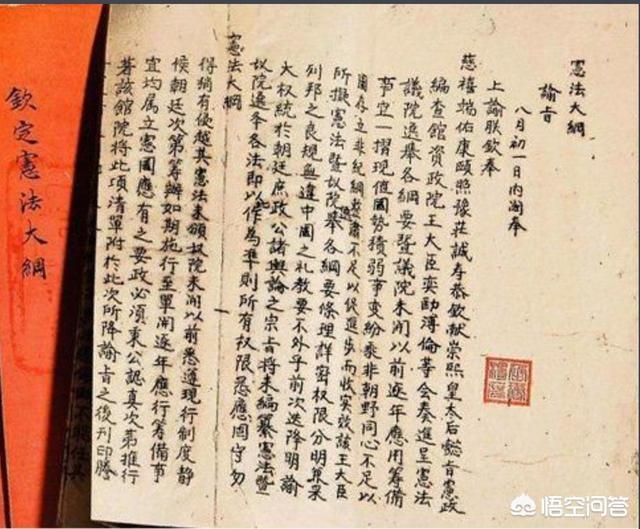 憲法大綱
諭旨
八月初一日內閣奉
上諭朕欽奉
慈禧端佑康頤昭豫莊誠壽恭欽獻崇熙皇太后懿旨憲政
編查館資政院王大臣奕劻溥倫等會奏進呈憲法
議院選舉各綱要暨議院未開以前逐年應用籌備
事宜一摺現值國勢積弱事變紛乘非朝野同心不足以
圖存立非紀綱整肅不足以促進步而收實效該王大臣
所擬憲法暨議院選舉各綱要條理詳密權限分明兼采
列邦之良規無違中國之禮教要不外乎前次迭降明諭
大權統於朝廷庶政公諸輿論之宗旨將來編纂憲法暨
議院選舉各法即以作為準則所有權限悉應固守勿
憲法大綱
得稍有侵越其憲法未頒議院未開以前悉遵現行制度靜
候朝廷次第籌辦如期施行至單開逐年應行籌備事
宜均屬立憲國應有之要政必須秉公認真次第推行
著該館院將此項清單附於此次所降諭旨之後刊印謄
欽定憲法大綱
悟空问答